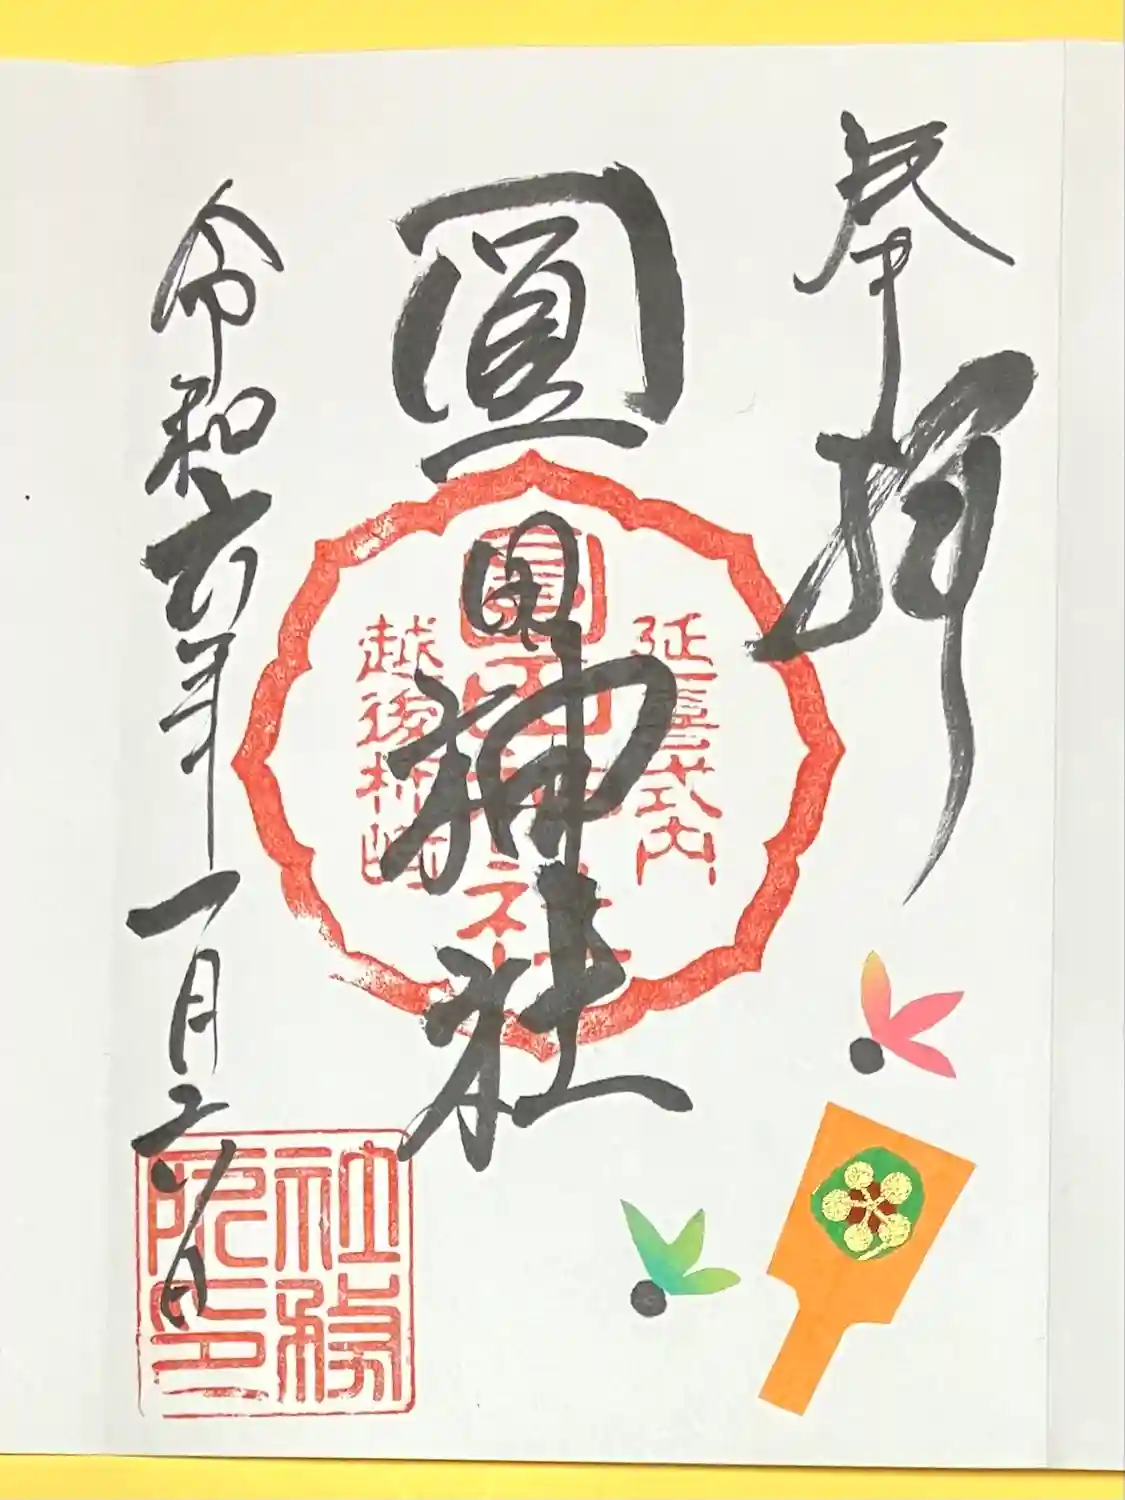 奉拝
圓田神社
延喜式内
圓田神社
越後柿崎
令和六年一月二八日
社務所印